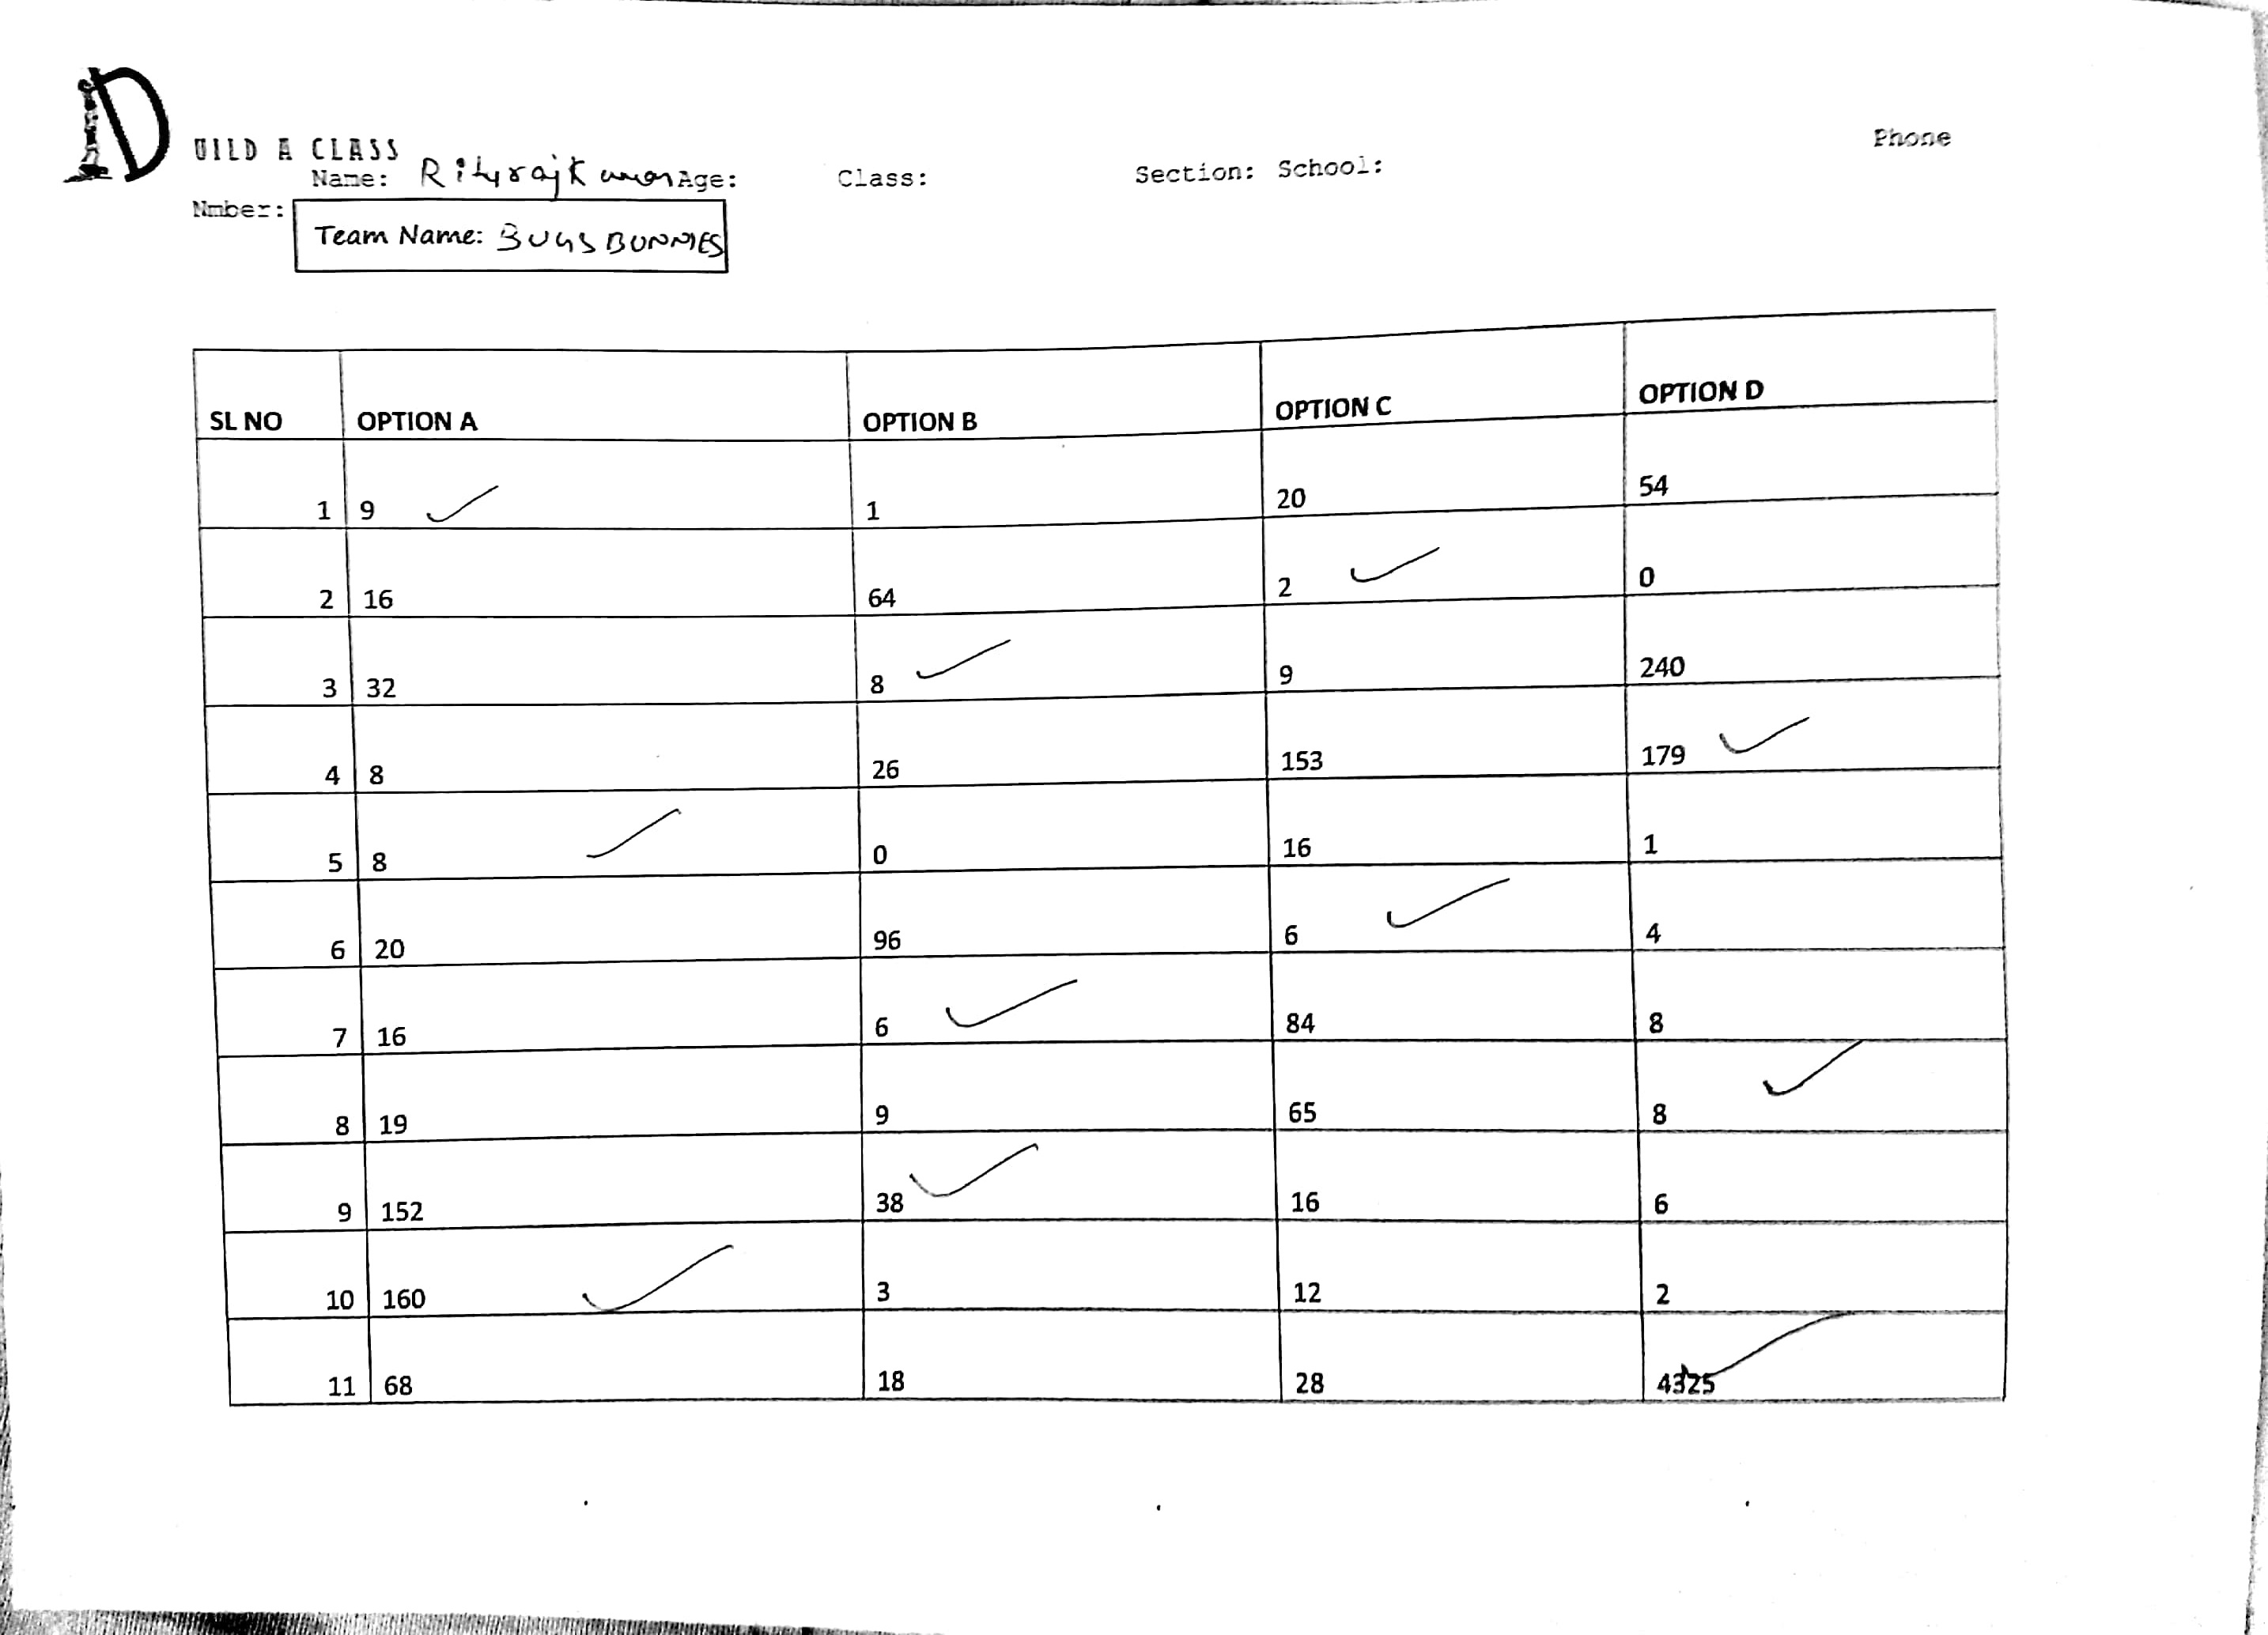 D
UILD A CLASS
Phone
Name: Rituraj Kumar Age: Class: Section: School:
Nmber:
Team Name: BUGS BUNNIES
SL NO OPTION A OPTION B OPTION C OPTION D
1 9 ✓ 1 20 54
2 16 64 2 ✓ 0
3 32 8 ✓ 9 240
4 8 26 153 179 ✓
5 8 ✓ 0 16 1
6 20 96 6 ✓ 4
7 16 6 ✓ 84 8
8 19 9 65 8 ✓
9 152 38 ✓ 16 6
10 160 ✓ 3 12 2
11 68 18 28 4325 ✓